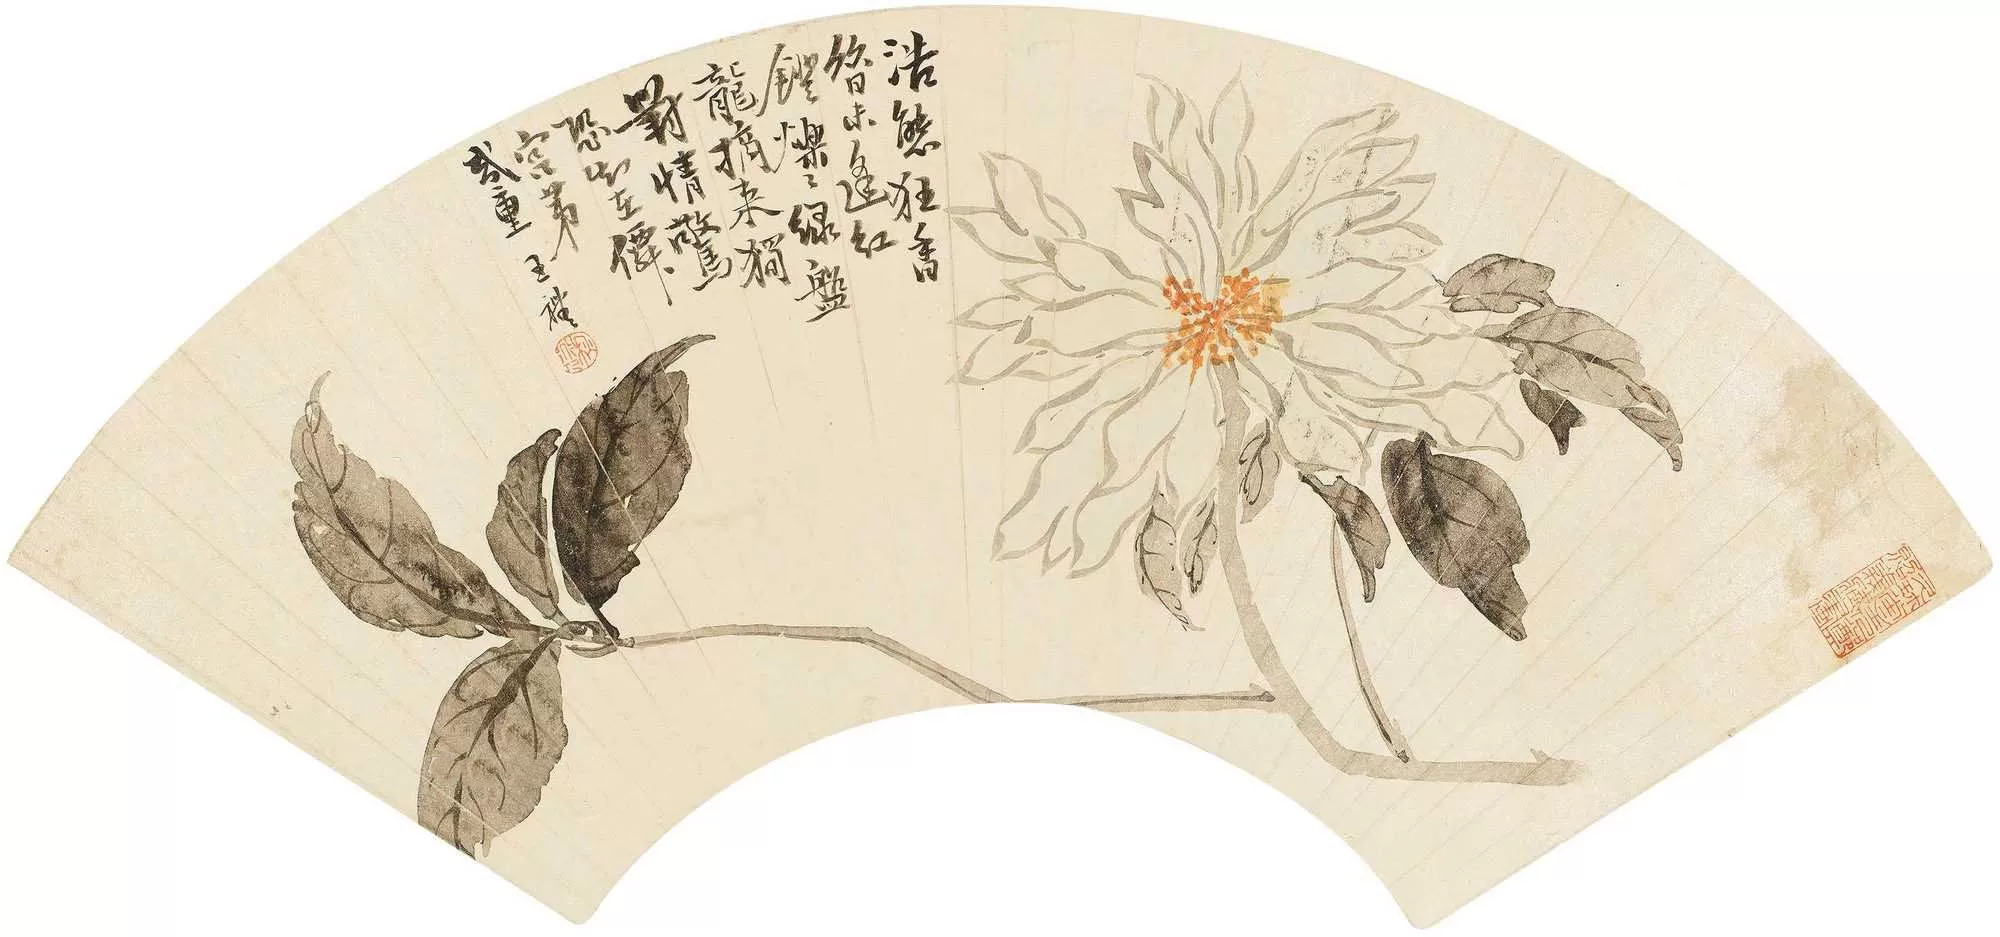 浩態狂香
昔未逢紅
鐙爍々綠盤
龍摘来獨
對情驚
恐身在僊
宮第
幾重
王禮